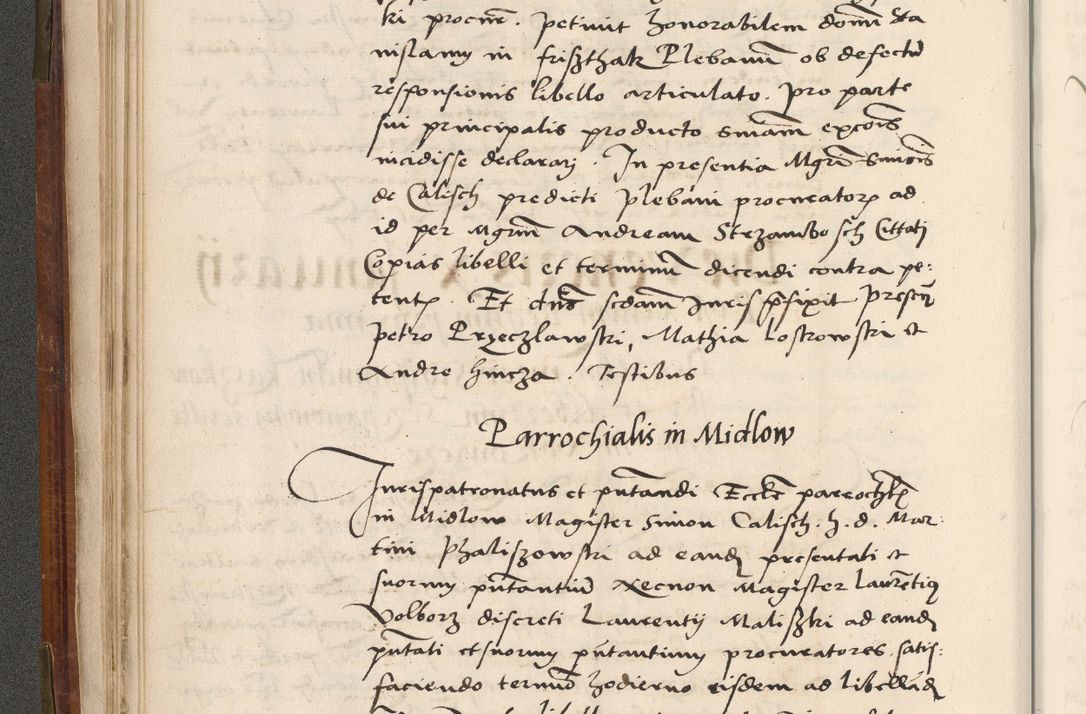 ki procur. petiuit honorabilem domi Sta
nislaum in friszthak Plebanū ob defectū
responsionis libello articulato. pro parte
sui principalis producto sniam excois
incidisse declarari. In presentia Mgri Simōis
de Calisch predicti plebani procuratoris ad
id per Mgrum Andream Strzambosch Cittati
Copias libelli et terminū dicendi contra pe:
tent. Et dns scdam Iuris pfixit presen
petro Przeczlawski, Mathia Lostrowski et
Andre hincza. Testibus
Parrochialis in Midlow
Iurispatronatus et pntandi Eccle parrochli
in Midlow Magister Simon Calisch. h. d. Mar:
tini Phaliszowski ad eand presentati et
suorum pntantiū Necnon Magister Laurētius
Volborz discreti Laurentij Maliszki ad eand
pntati et suorum pntantium procuratores satis:
faciendo termio hodierno eisdem ad libelland